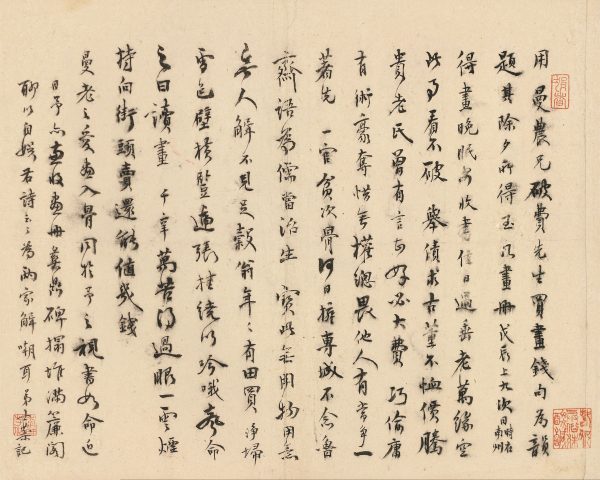 用曼農兄破費先生買畫錢句為韻
題其除夕所得玉几畫冊戊辰上九次日時在南州
得畫晚眠無收書值日過齋老萬緣空
此事看不破 舉債求古董不恤價騰
貴老氏曾有言甚好必大費 巧偷庸
有術豪奪惜無權總畏他人有爭一
著先 一官貧次骨何日擁專城不念魯
齋語為儒當治生 寶此無用物用意
無人解不見足穀翁年〻有田買 淨掃
雪色壁橫豎遍張挂繞以吟哦聲命
之曰讀畫 千辛萬苦得過眼一雲煙
持向街頭賣還能值幾錢
曼老之愛畫入骨同於予之視書如命近
日予亦畫收畫冊墓誌碑搨堆滿簾閣
聊以自娛右詩云〻為兩家解嘲耳 弟士棻記